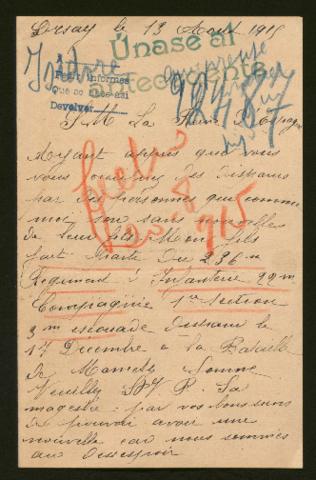 Dorsay le 13 Aout 1915
Únase al
antecedente
Pedir informes
Que se cite así
Devolver
98487
S. M. La Reine d'Espagne
Ayant appris que vous
vous occupiez des disparus
par des personnes que comme
moi son sans nouvelles
de leur fils. Mon fils
fait partie Du 236m
Régiment d'Infanterie 22m
Compagnie 1re Section
3m escouade disparu le
17 Decembre a la Bataille
de Mametz Somme
Veuilly S. V. P. Sa
magesté par vos bons soins
de pouvoir avoir une
nouvelle car nous sommes
au desespoir